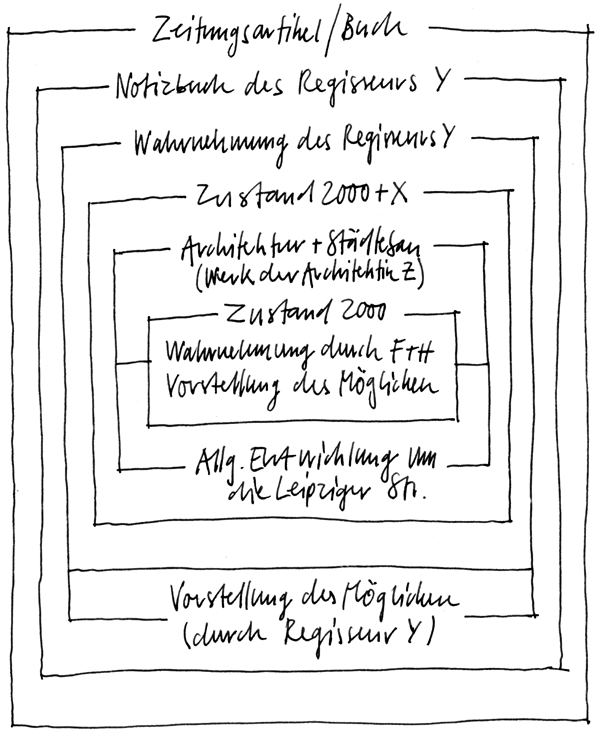 Zeitungsartikel/Buch
Notizbuch des Regisseurs Y
Wahrnehmung des Regisseurs Y
Zustand 2000+X
Architektur + Städtebau
(Werk der Architektin Z)
Zustand 2000
Wahrnehmung durch F+H
Vorstellung des Möglichen
Allg. Entwicklung um
die Leipziger Str.
Vorstellung des Möglichen
(durch Regisseur Y)